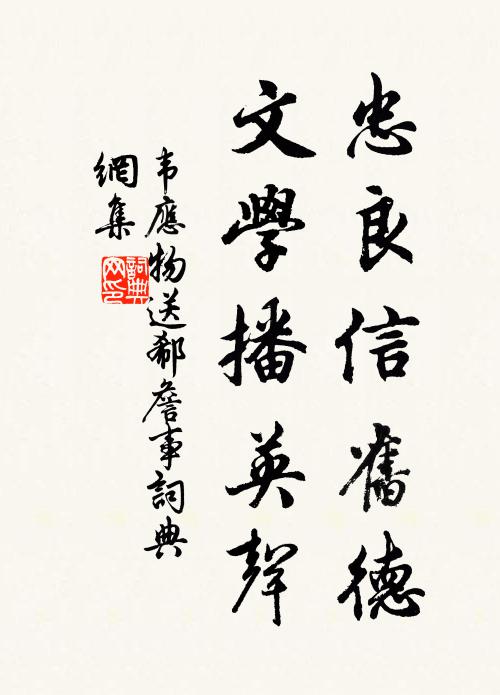 忠良信舊德
文學播英聲
韦應物送郗詹事詞典
網集
詞典
网印